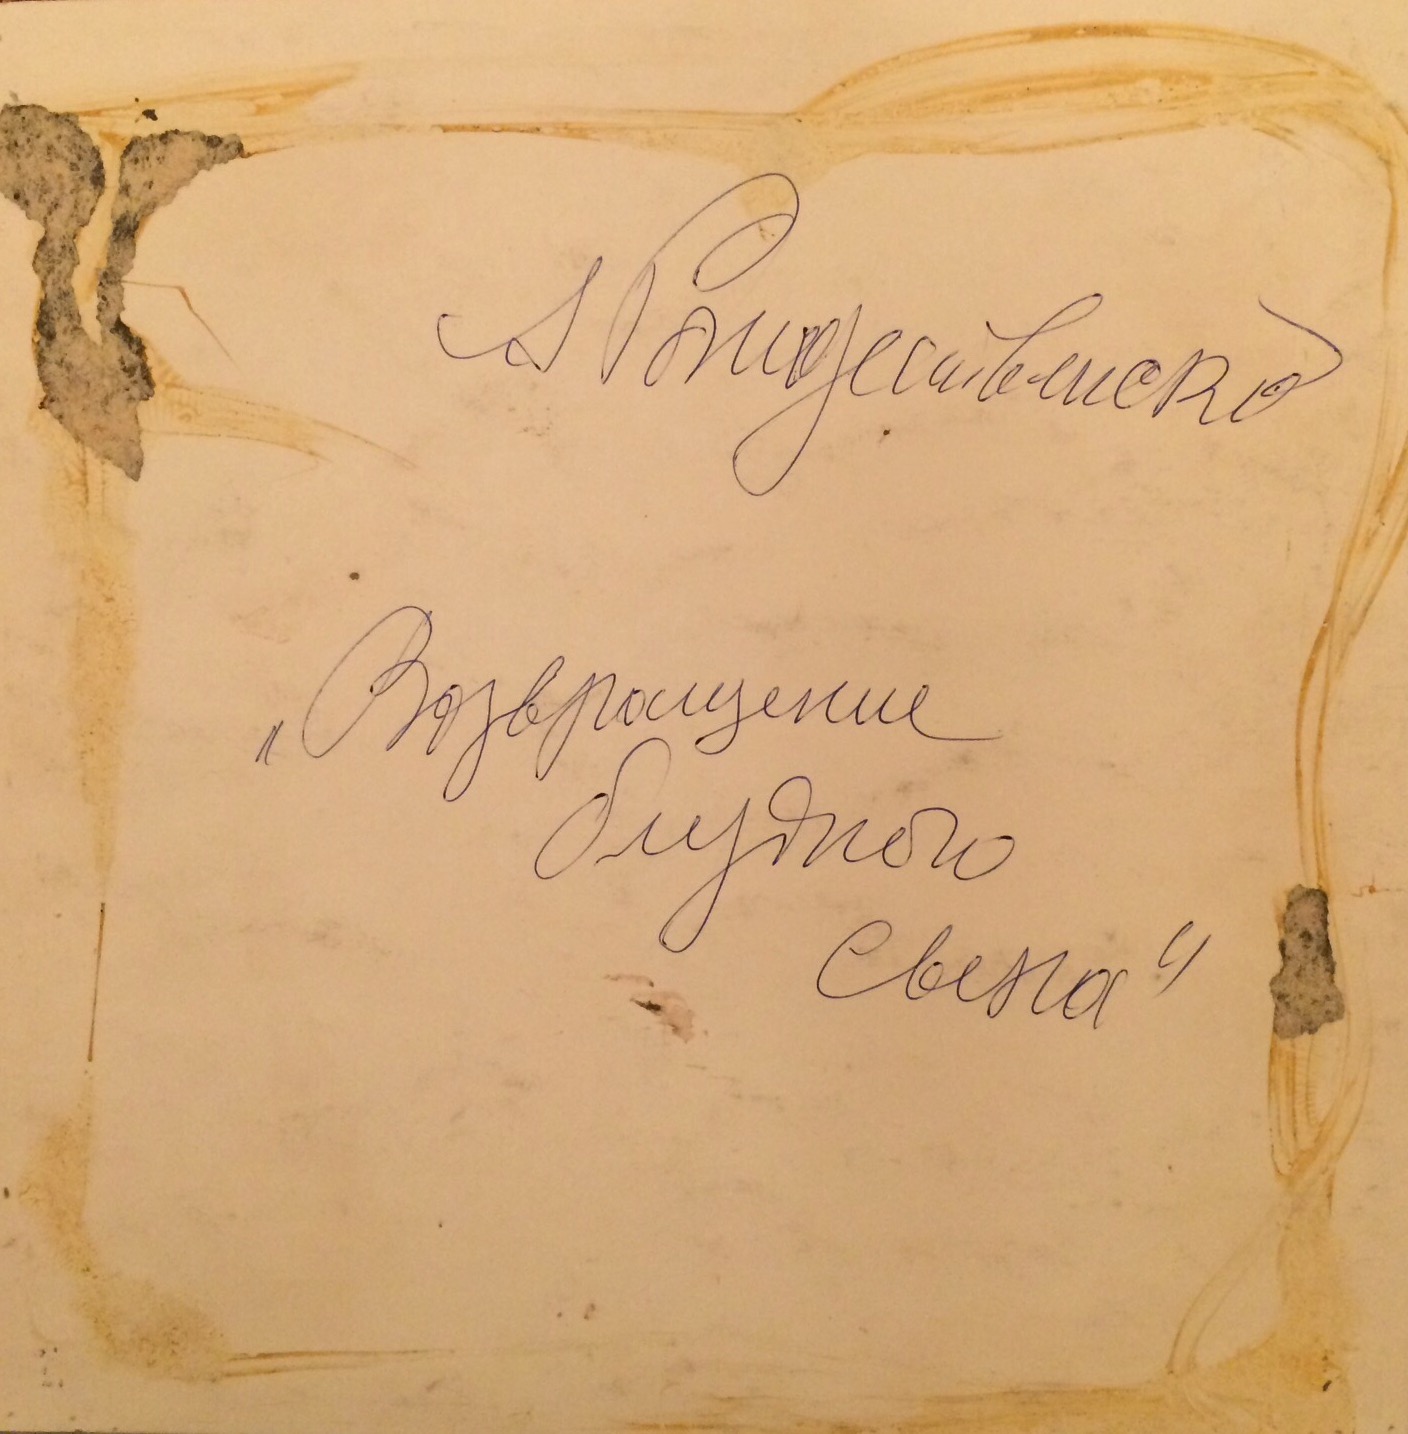 А Рождественской
„Возвращение
блудного
сына“